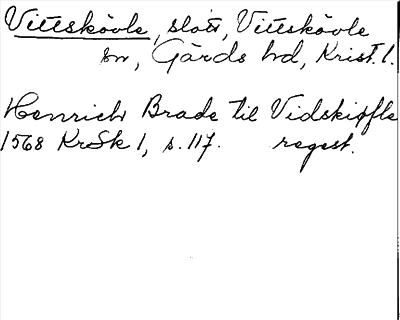 Vittskövle, slott, Vittskövle
sn, Gärds hd, Krist. l.
Henrich Brade til Vidskiøfle
1568 KrSk 1, s. 117. regest.